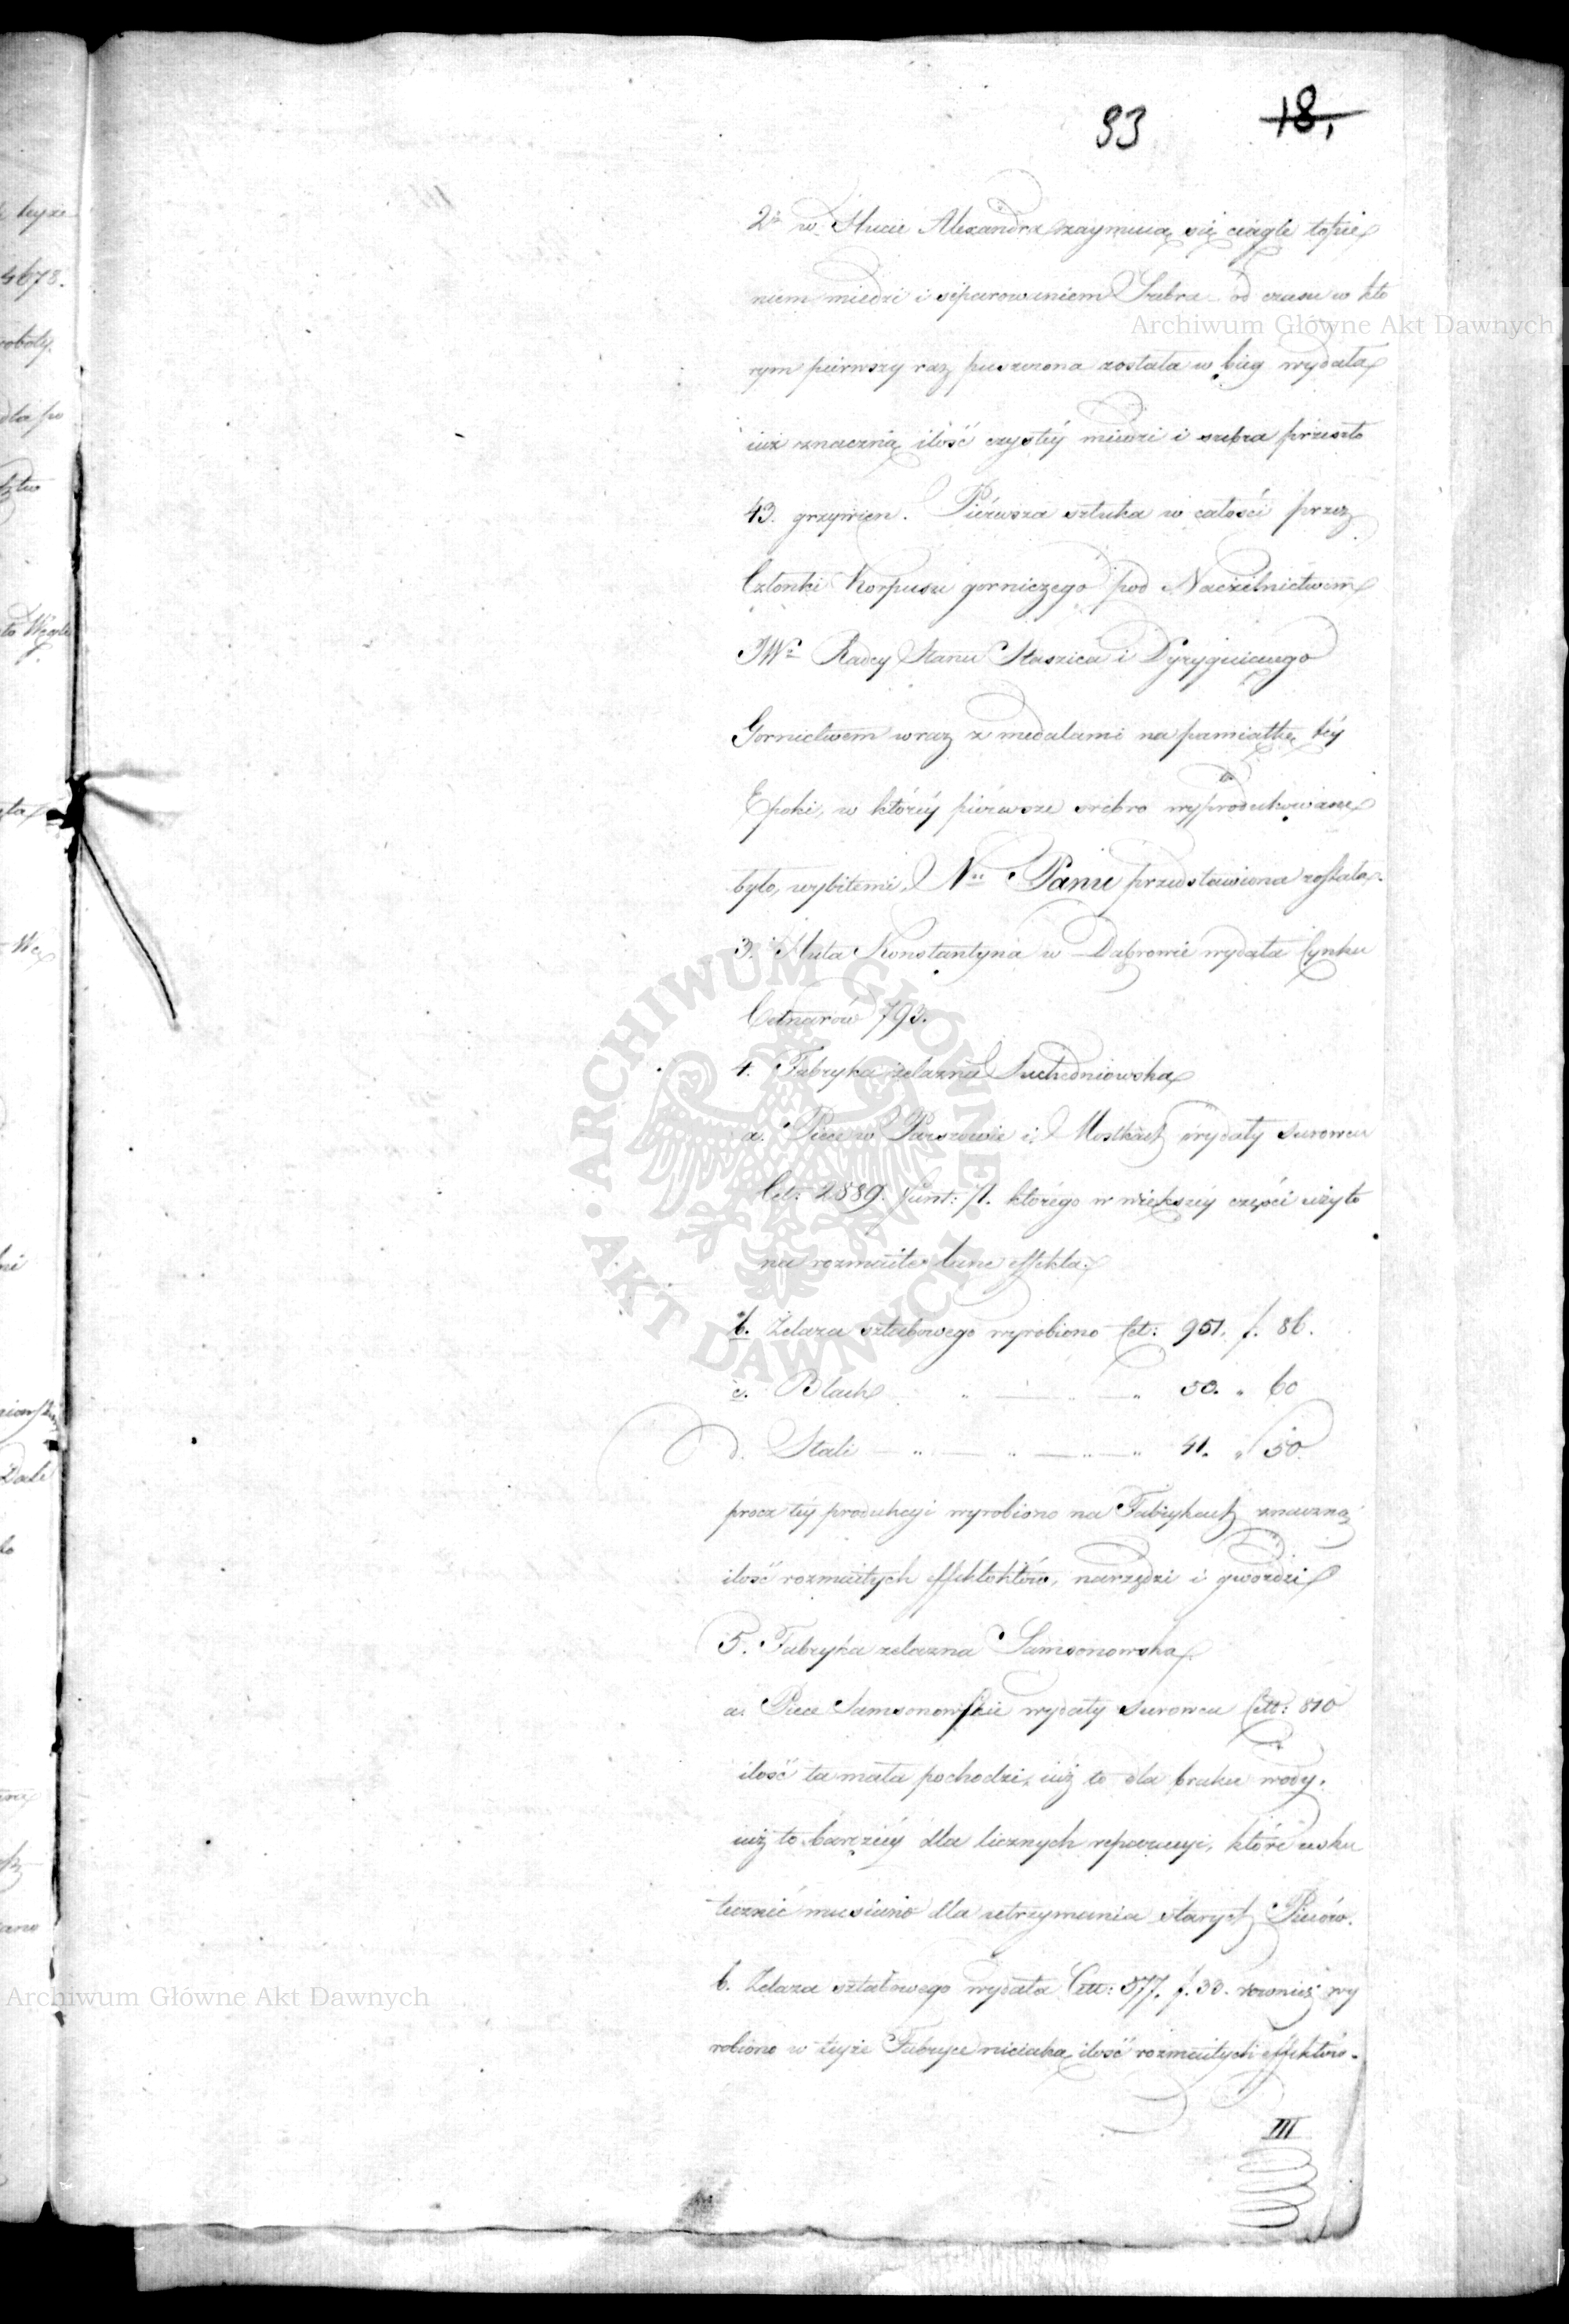 93 18,
2° w Hucie Alexandra zaymuią się ciągle topie
niem miedzi i separowaniem Srebra od czasu w kto
rym pierwszy raz puszczona została w bieg wydała
iuż znaczną ilość czystéy miedzi i srebra przeszło
43. grzywien. Piérwsza sztuka w całości przez
Członki Korpusu gorniczego pod Naczelnictwem
JWº Radcy Stanu Staszica i Dyryguiącego
Gornictwem wraz z medalami na pamiątkę téy
Epoki, w któréy piérwsze srébro wyprodukowane
było, wybitemi, Nu Panu przedstawiona została.
3. Huta Konstantyna w Dąbrowie wydała Cynku
Cetnarów 793.
4. Fabryka żelazna Suchedniowska
a. Piece w Parszowie i Mostkach wydały surowcu
Cet: 2889. funt: 71. którégo w większéy części użyto
na rozmaite lane effekta.
b. Żelaza sztabowego wyrobiono Cet: 951. f. 86.
c. Blach „ — „ — „ 50. „ 60
d. Stali — „ — „ — „ — „ 41. „ 50.
procz téy produkcyi wyrobiono na Fabrykach znaczną
ilość rozmaitych effektoktów, narzędzi i gwoździ
5. Fabryka zelazna Samsonowska
a. Piece Samsonowskie wydały surowcu Cett: 810
ilość ta mała pochodzi, iuż to dla braku wody,
iuż to barziéy dla licznych reparacyi, któré usku
tecznić musiano dla utrzymania starych Pieców.
b. Zelaza sztabowego wydała Cett: 577. f. 33. rownież wy
robiono w teyże Fabryce nieiaką ilość rozmaitych effektów.
III
Archiwum Główne Akt Dawnych
ARCHIWUM GŁÓWNE AKT DAWNYCH
Archiwum Główne Akt Dawnych